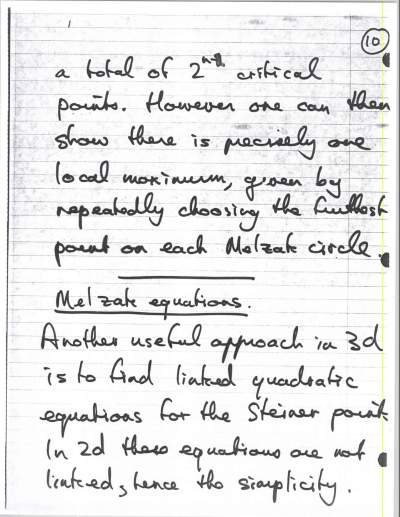 10
a total of 2ⁿ⁻¹ critical
points. However one can then
show there is precisely one
local maximum, given by
repeatedly choosing the furthest
point on each Melzak circle.
Melzak equations.
Another useful approach in 3d
is to find linked quadratic
equations for the Steiner point.
In 2d these equations are not
linked, hence the simplicity.